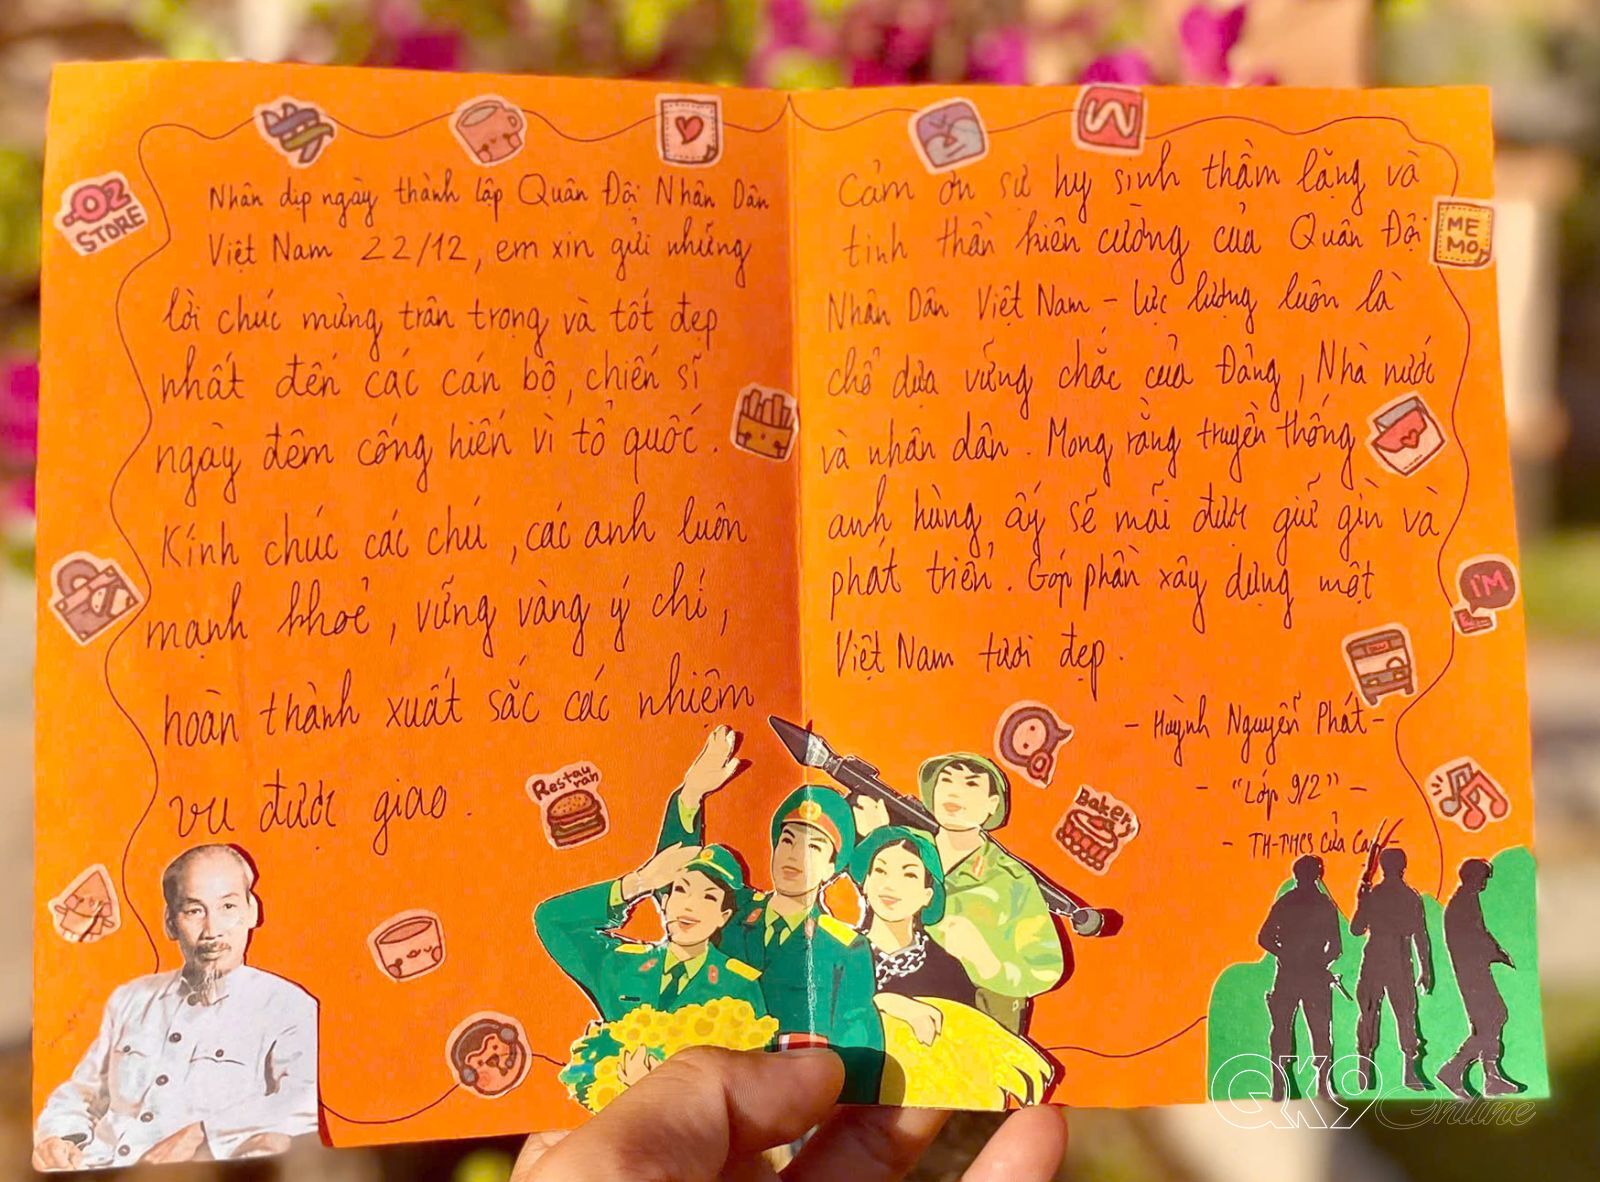 Nhân dịp ngày thành lập Quân Đội Nhân Dân
Việt Nam 22/12, em xin gửi những
lời chúc mừng trân trọng và tốt đẹp
nhất đến các cán bộ, chiến sĩ
ngày đêm cống hiến vì tổ quốc.
Kính chúc các chú, các anh luôn
mạnh khoẻ, vững vàng ý chí,
hoàn thành xuất sắc các nhiệm
vụ được giao.
Cảm ơn sự hy sinh thầm lặng và
tinh thần kiên cường của Quân Đội
Nhân Dân Việt Nam - lực lượng luôn là
chổ dựa vững chắc của Đảng, Nhà nước
và nhân dân. Mong rằng truyền thống
anh hùng ấy sẽ mãi được giữ gìn và
phát triển. Góp phần xây dựng một
Việt Nam tươi đẹp.
- Huỳnh Nguyễn Phát -
- "Lớp 9/2" -
- TH-THCS Cửa Cạn -
OZ
STORE
W
ME
MO
I'M
Restau
ran
Bakery
QK9 Online